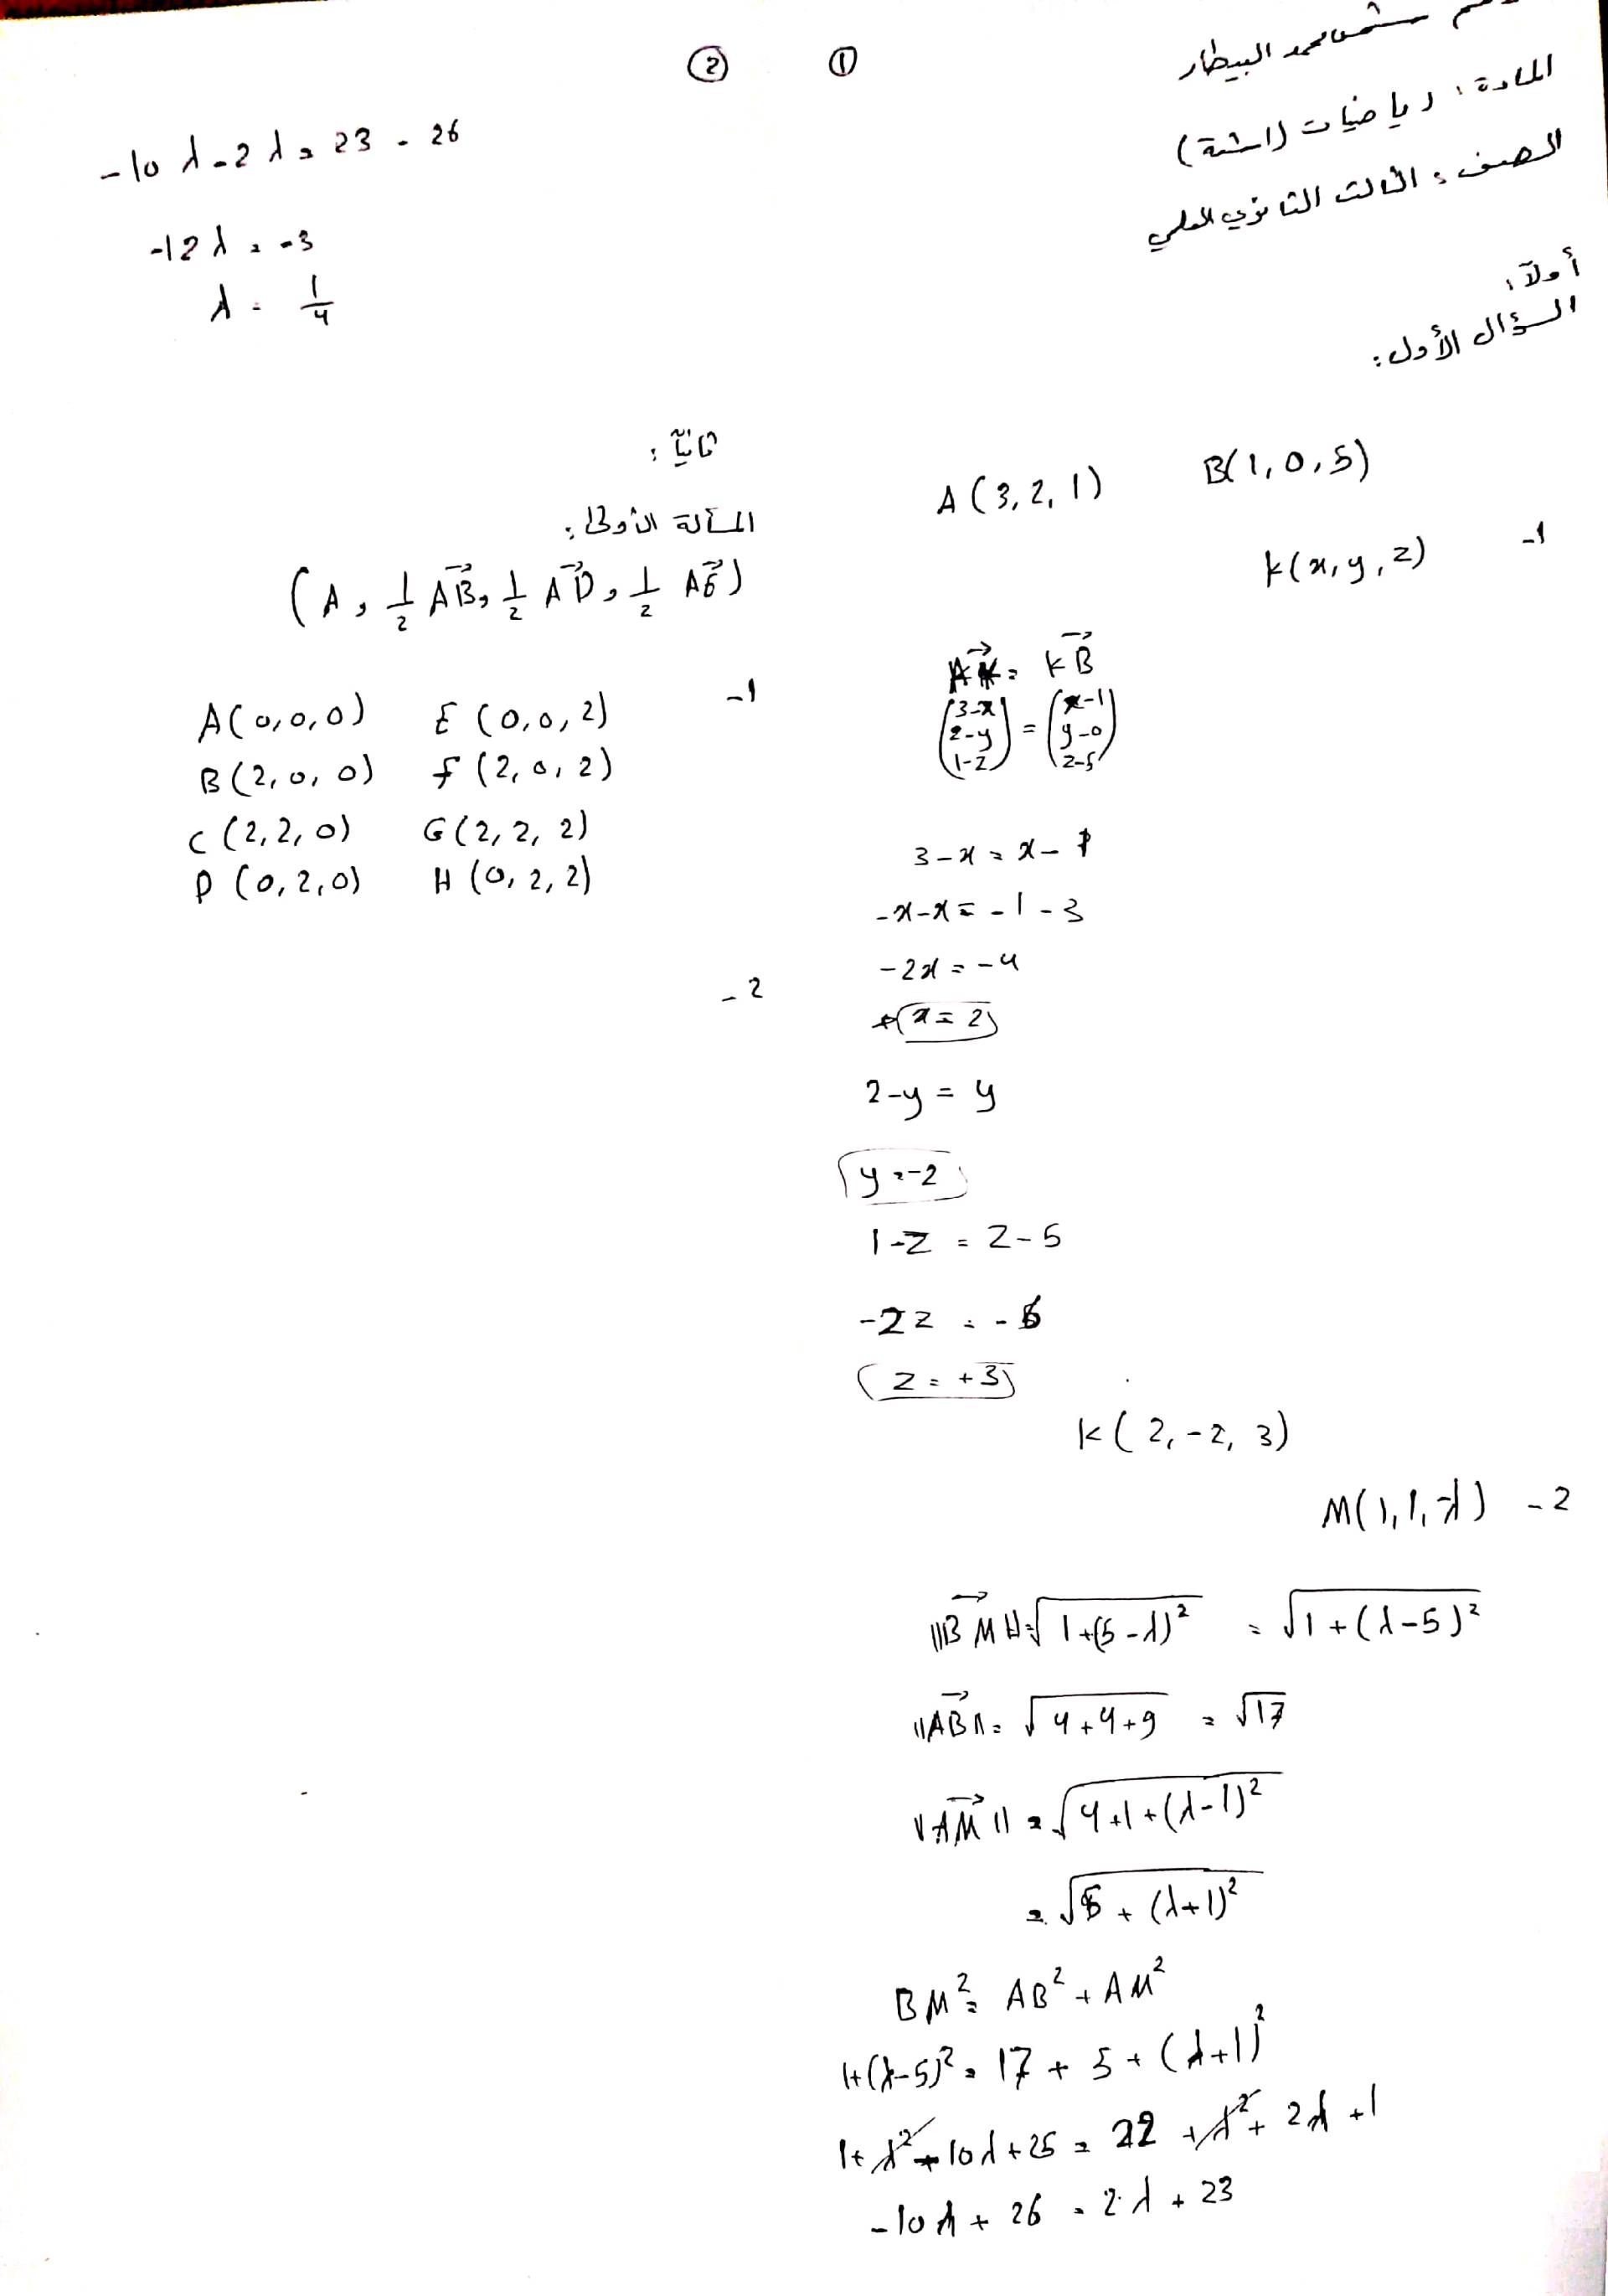 ①
شمس محمد البيطار
المادة: رياضيات (أشعة)
الصف: الثالث الثانوي العلمي
أولاً:
السؤال الأول:
A(3,2,1) B(1,0,5)
-1 K(x,y,z)
AK→ = KB→
(3-x, 2-y, 1-z) = (x-1, y-0, z-5)
3-x = x-1
-x-x = -1-3
-2x = -4
x = 2
2-y = y
y = -2
1-z = z-5
-2z = -6
z = +3
K(2,-2,3)
-2 M(1,1,λ)
||BM→|| = √(1+(5-λ)²) = √(1+(λ-5)²)
||AB→|| = √(4+4+9) = √17
||AM→|| = √(4+1+(λ-1)²)
= √(5+(λ+1)²)
BM² = AB² + AM²
1+(λ-5)² = 17+5+(λ+1)²
1+λ²-10λ+25 = 22+λ²+2λ+1
-10λ+26 = 2λ+23
②
-10λ-2λ = 23-26
-12λ = -3
λ = 1/4
ثانياً:
المسألة الأولى:
(A, 1/2 AB→, 1/2 AD→, 1/2 AE→)
-1
A(0,0,0) E(0,0,2)
B(2,0,0) F(2,0,2)
C(2,2,0) G(2,2,2)
D(0,2,0) H(0,2,2)
-2